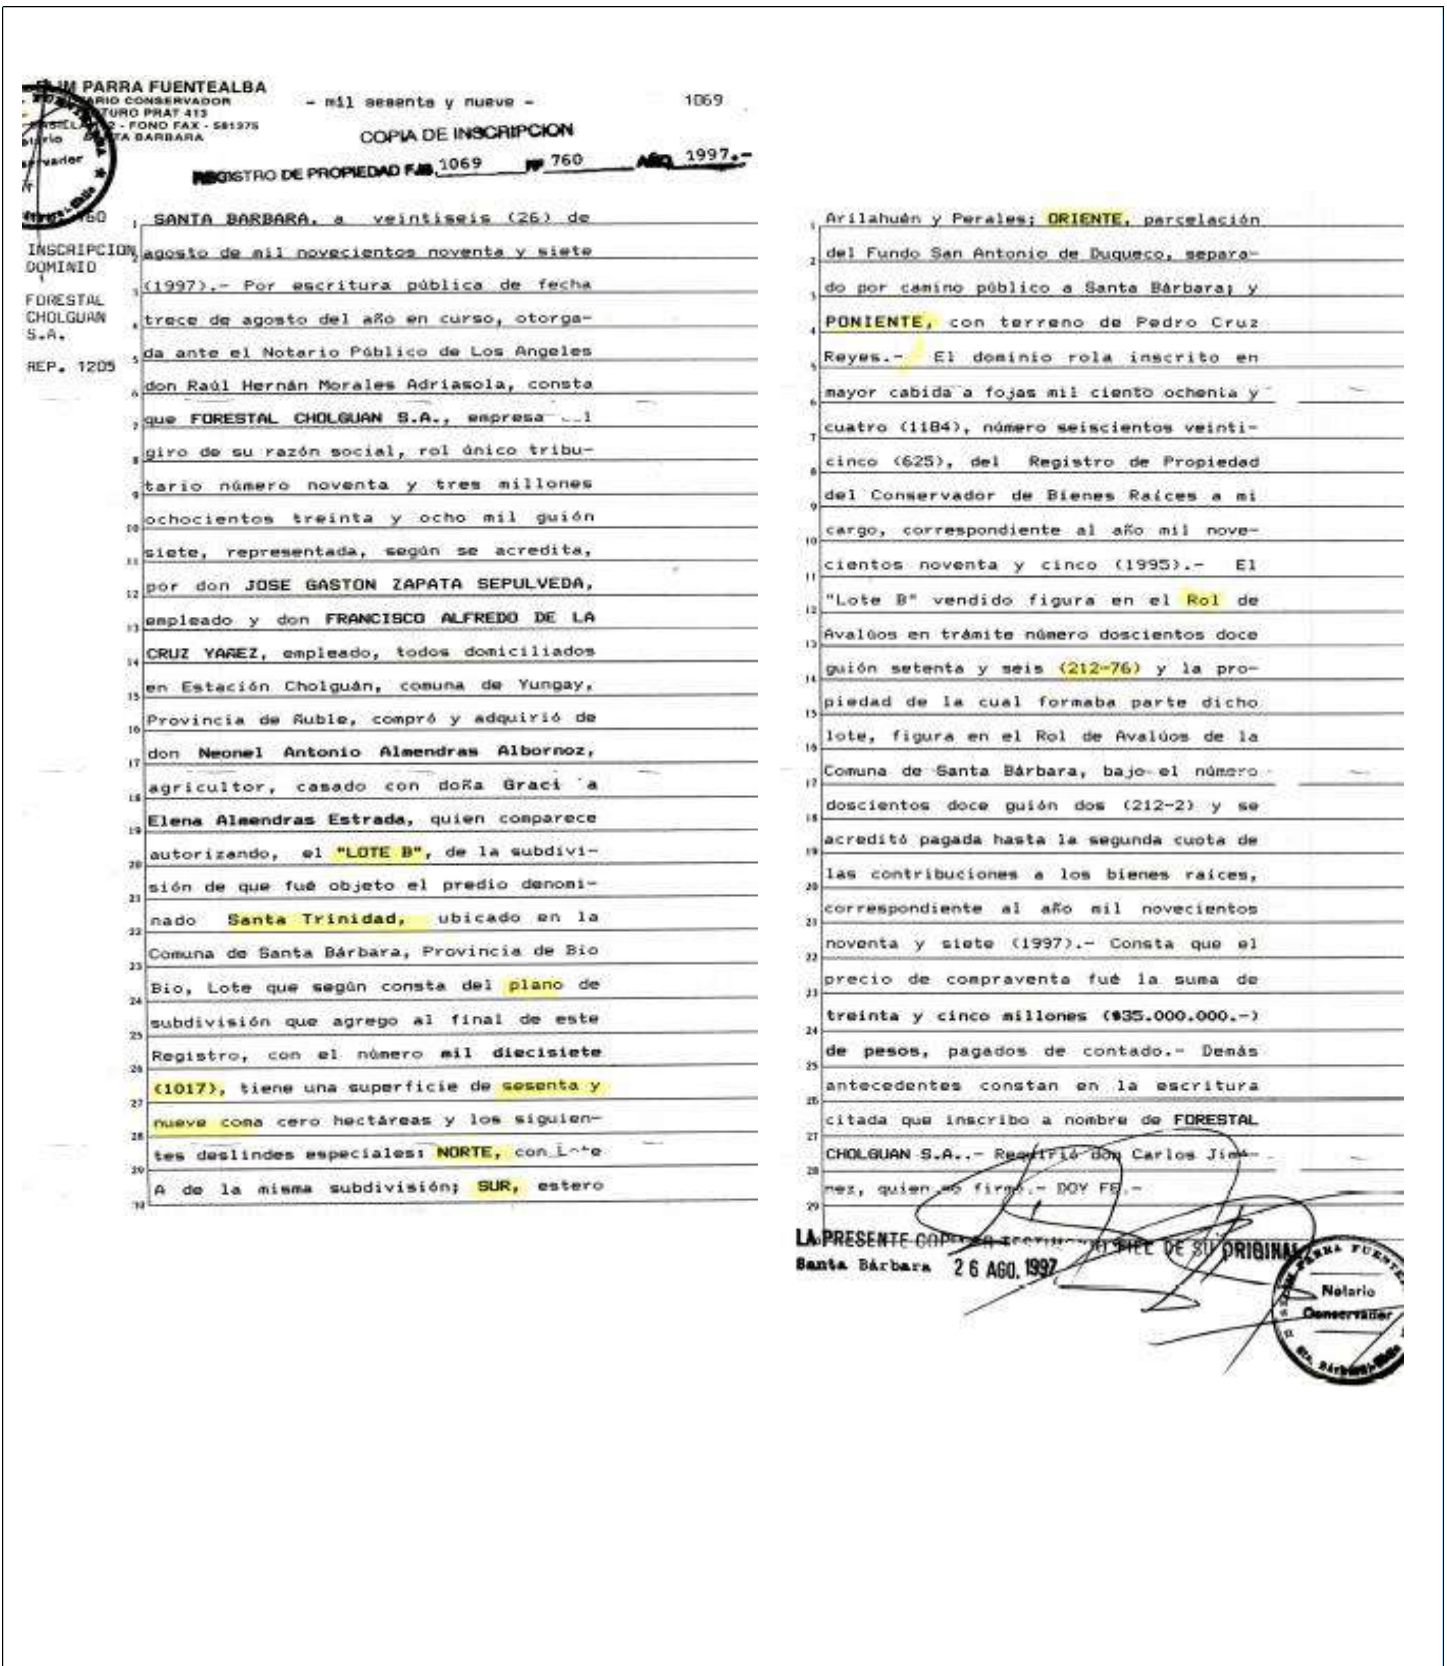 PARRA FUENTEALBA
CONSERVADOR
PRAT 413
- FONO FAX - 581375
BARBARA
- mil sesenta y nueve -
1069
COPIA DE INSCRIPCION
REGISTRO DE PROPIEDAD FJS. 1069 Nº 760 AÑO 1997.-
INSCRIPCION
DOMINIO
FORESTAL
CHOLGUAN
S.A.
REP. 1205
SANTA BARBARA, a veintiseis (26) de
agosto de mil novecientos noventa y siete
(1997).- Por escritura pública de fecha
trece de agosto del año en curso, otorga-
da ante el Notario Público de Los Angeles
don Raúl Hernán Morales Adriasola, consta
que FORESTAL CHOLGUAN S.A., empresa
giro de su razón social, rol único tribu-
tario número noventa y tres millones
ochocientos treinta y ocho mil guión
siete, representada, según se acredita,
por don JOSE GASTON ZAPATA SEPULVEDA,
empleado y don FRANCISCO ALFREDO DE LA
CRUZ YAÑEZ, empleado, todos domiciliados
en Estación Cholguán, comuna de Yungay,
Provincia de Ñuble, compró y adquirió de
don Neonel Antonio Almendras Albornoz,
agricultor, casado con doña
Elena Almendras Estrada, quien comparece
autorizando, el "LOTE B", de la subdivi-
sión de que fué objeto el predio denomi-
nado Santa Trinidad, ubicado en la
Comuna de Santa Bárbara, Provincia de Bio
Bio, Lote que según consta del plano de
subdivisión que agrego al final de este
Registro, con el número mil diecisiete
(1017), tiene una superficie de sesenta y
nueve coma cero hectáreas y los siguien-
tes deslindes especiales: NORTE, con Lote
A de la misma subdivisión; SUR, estero
Arilahuén y Perales; ORIENTE, parcelación
del Fundo San Antonio de Duqueco, separa-
do por camino público a Santa Bárbara; y
PONIENTE, con terreno de Pedro Cruz
Reyes.- El dominio rola inscrito en
mayor cabida a fojas mil ciento ochenta y
cuatro (1184), número seiscientos veinti-
cinco (625), del Registro de Propiedad
del Conservador de Bienes Raíces a mi
cargo, correspondiente al año mil nove-
cientos noventa y cinco (1995).- El
"Lote B" vendido figura en el Rol de
Avalúos en trámite número doscientos doce
guión setenta y seis (212-76) y la pro-
piedad de la cual formaba parte dicho
lote, figura en el Rol de Avalúos de la
Comuna de Santa Bárbara, bajo el número
doscientos doce guión dos (212-2) y se
acreditó pagada hasta la segunda cuota de
las contribuciones a los bienes raíces,
correspondiente al año mil novecientos
noventa y siete (1997).- Consta que el
precio de compraventa fué la suma de
treinta y cinco millones ($35.000.000.-)
de pesos, pagados de contado.- Demás
antecedentes constan en la escritura
citada que inscribo a nombre de FORESTAL
CHOLGUAN S.A..- Requirió don Carlos Jimé-
nez, quien no firmó.- DOY FE.-
LA PRESENTE COPIA ES TESTIMONIO FIEL DE SU ORIGINAL
Santa Bárbara 26 AGO. 1997
Notario
Conservador